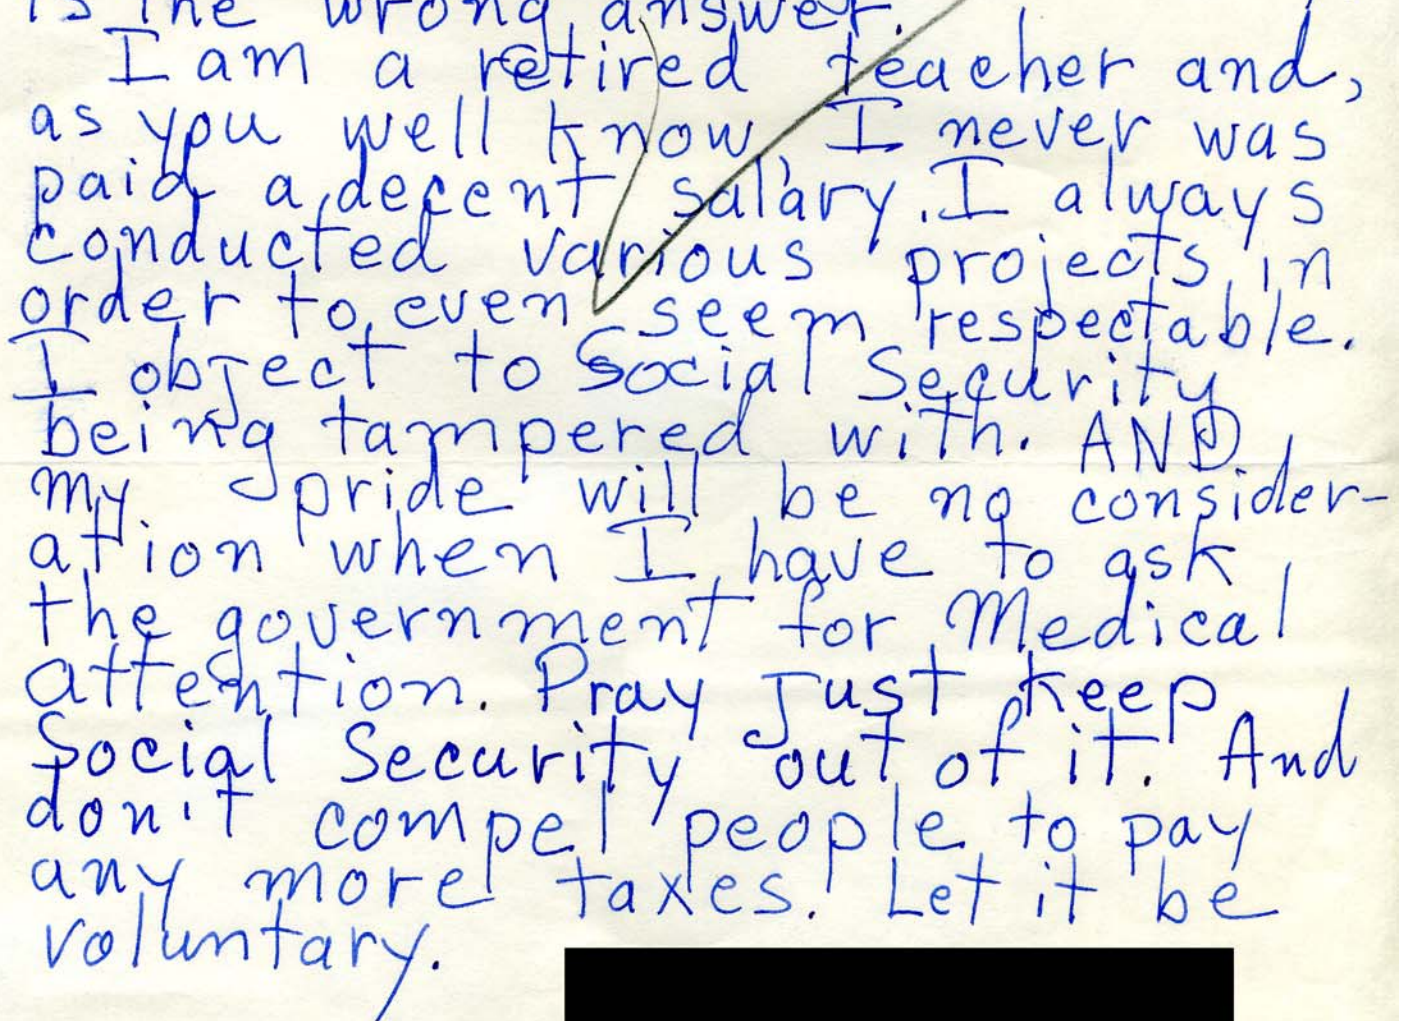 is the wrong answer.
I am a retired teacher and,
as you well know, I never was
paid a decent salary. I always
conducted various projects in
order to even seem respectable.
I object to Social Security
being tampered with. AND
my pride will be no consider-
ation when I have to ask
the government for Medical
attention. Pray just keep
Social Security out of it. And
don't compel people to pay
any more taxes. Let it be
voluntary.